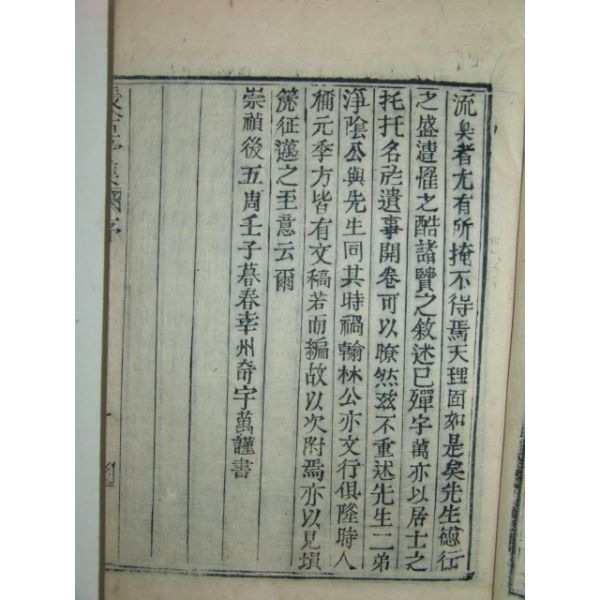 流矣者尤有所掩不得焉天理固如是矣先生德行
之盛遭罹之酷諸賢之敘述已殫宇萬亦以居士之
托托名於遺事開卷可以瞭然玆不重述先生二弟
淨陰公與先生同其時禍翰林公亦文行俱隆時人
稱元季方皆有文稿若而編故以次附焉亦以見塤
篪征邁之至意云爾
崇禎後五周壬子暮春幸州奇宇萬謹書